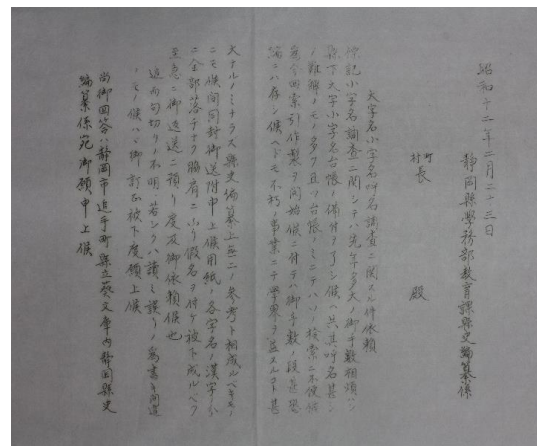 昭和十二年二月二十三日
静岡縣學務部教育課縣史編纂係
町村長 殿
大字名小字名呼名調査ニ関スル件依頼
標記小字名調査ニ関シテハ先年多大ノ御手数相煩ハシ
縣下大字小字名台帳ノ備付ヲ了シ候ヘ共其呼名甚シ
ク難解ノモノ多ク且ツ台帳ノミニテハ之ノ検索ニ不便
今回索引作製ヲ開始候ニ付テハ御手数ノ段甚恐
縮ニハ存シ候ヘドモ不朽ノ事業ニテ學界ヲ益スルコト甚
大ナルノミナラズ縣史編纂上無二ノ参考ト相成ルベキモノ
ニモ候間同封御送附申上候用紙ノ各字名ノ漢字ノ分
ニ全部落チナク脇肩ニ小リ假名ヲ付ケ被下成ルベク
至急ニ御返送ニ預リ度及御依頼候也
追而句切リ不明若シクハ讀ミ誤リノ為書キ間違
ノモノ候ハバ御訂正被下度願上候
尚御回答ハ静岡市追手町縣立葵文庫内静岡縣史
編纂係宛御願申上候